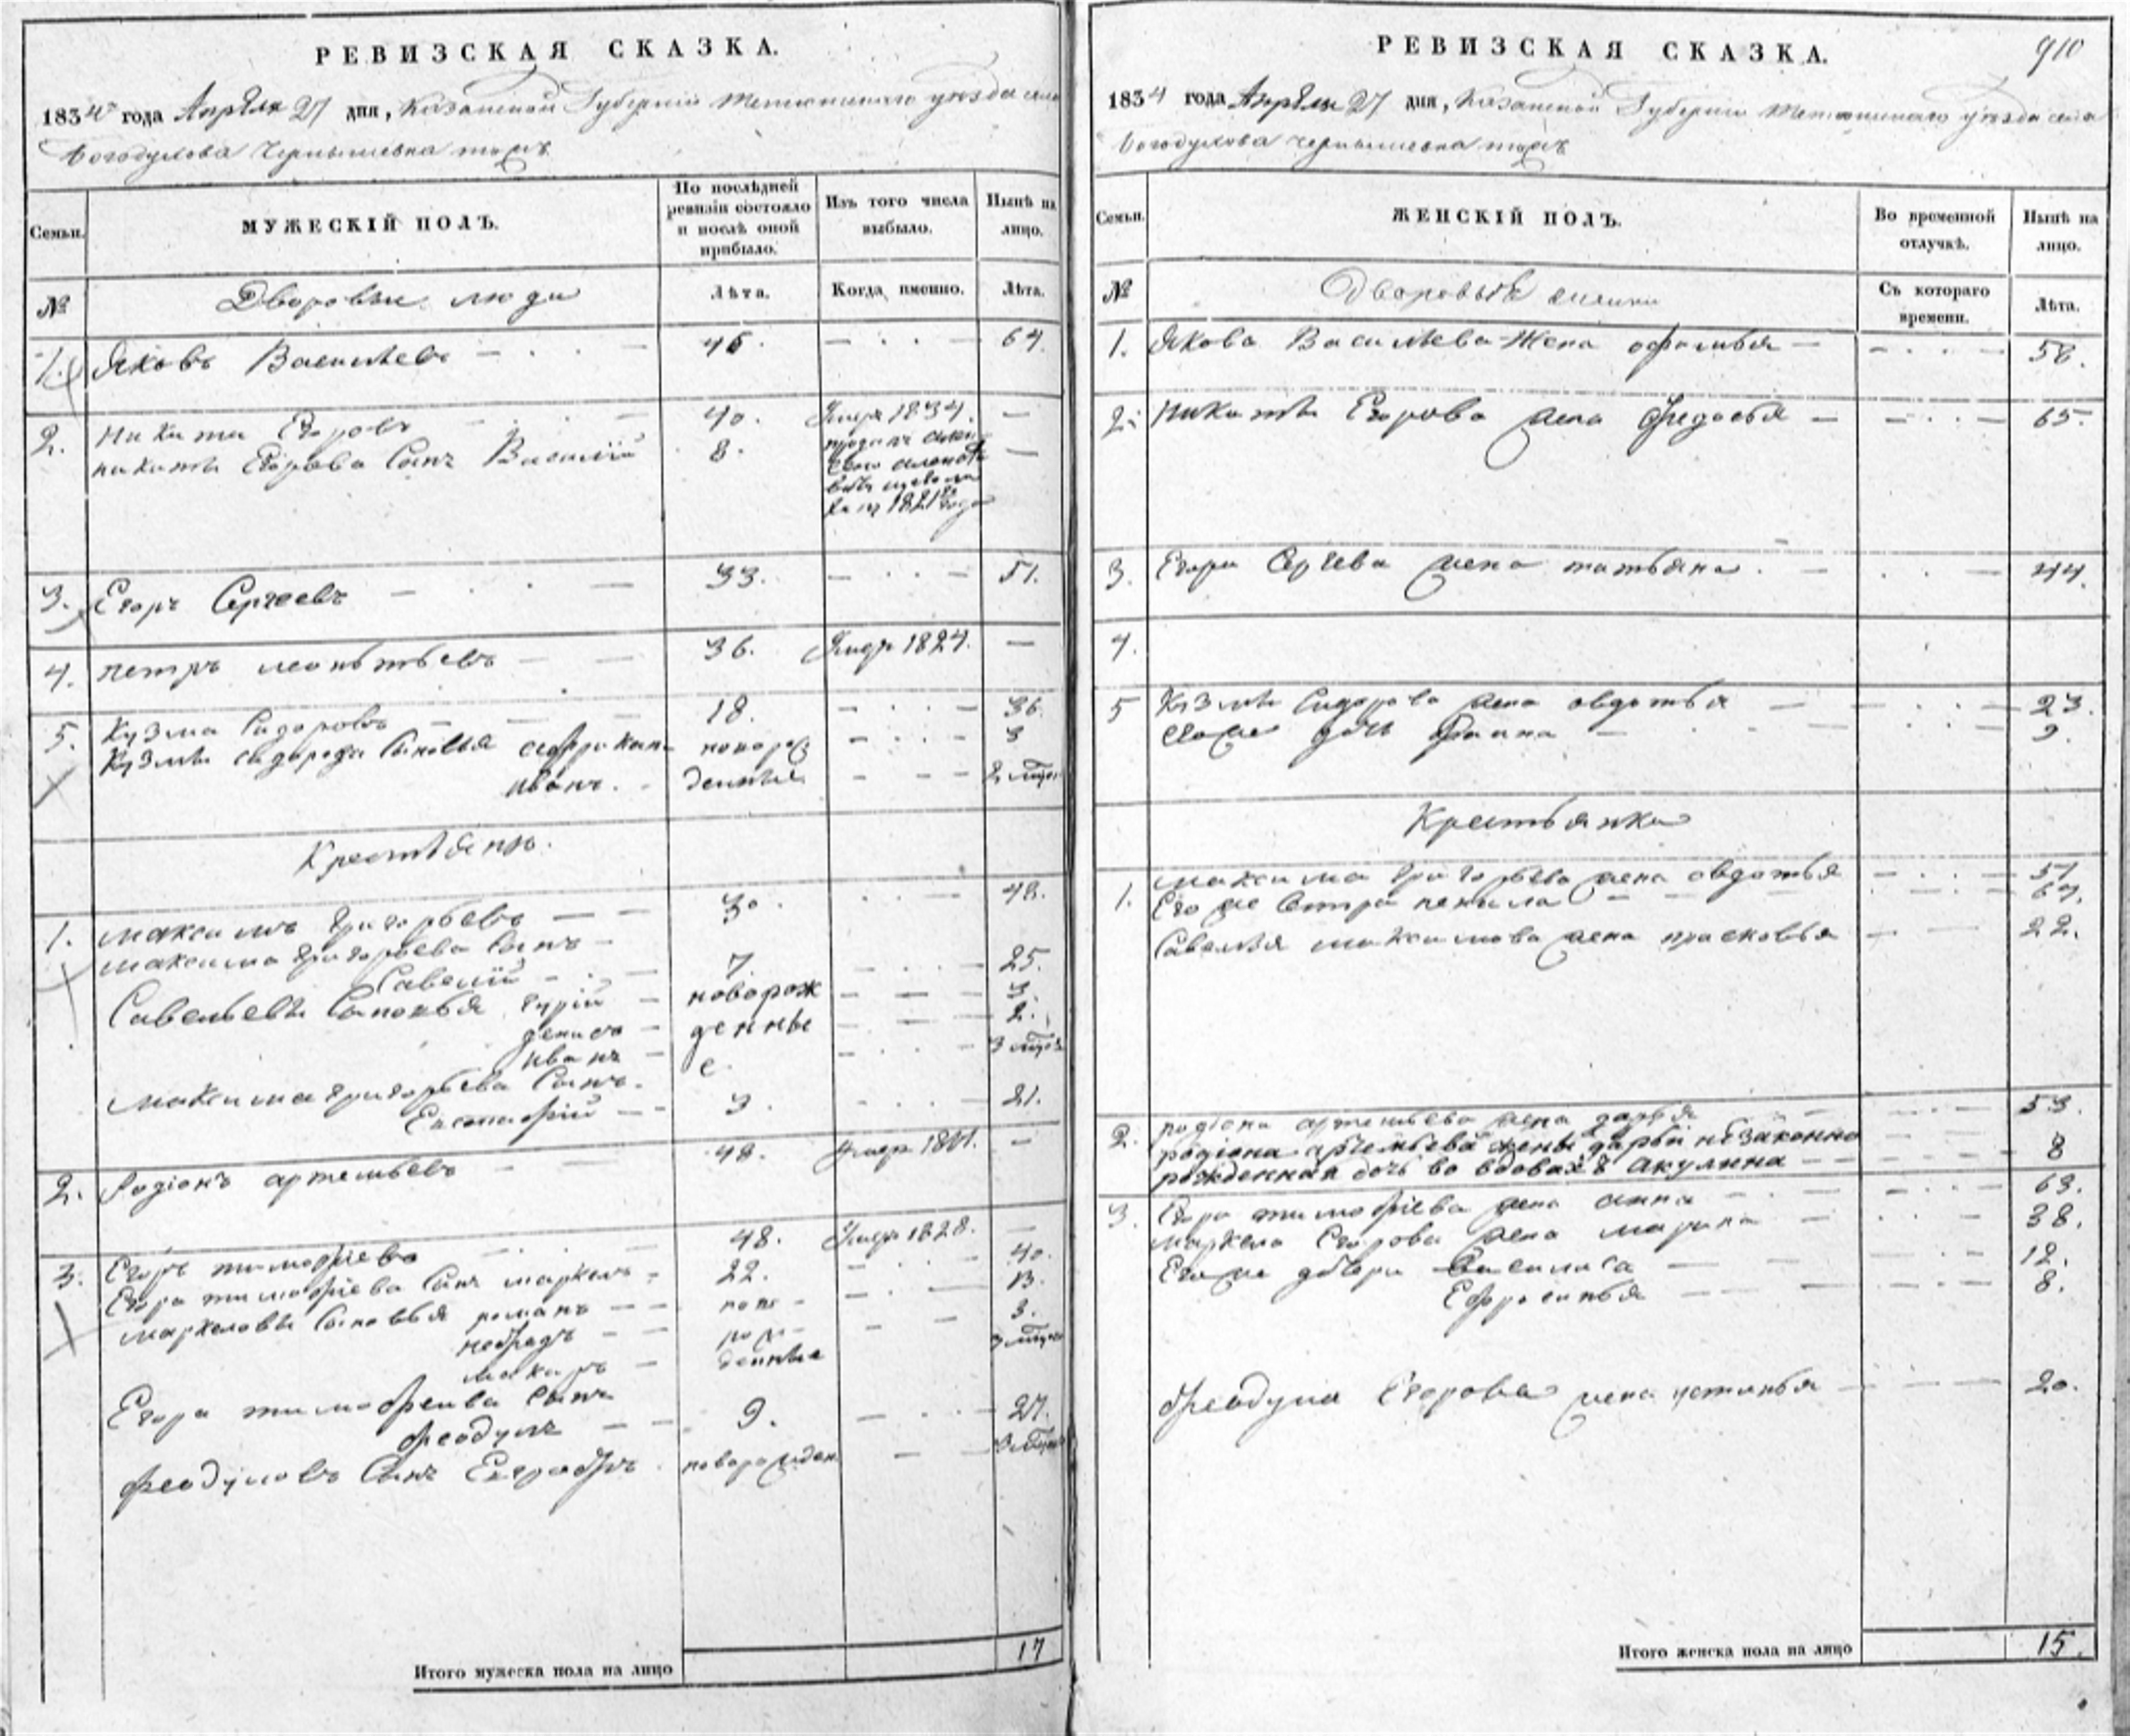 РЕВИЗСКАЯ СКАЗКА.
1834 года Апреля 27 дня, Казанской Губернии Тетюшского уезда села
Богодулова Чернышевка тожъ
Семьи.
МУЖЕСКІЙ ПОЛЪ.
По послѣдней ревизіи состояло и послѣ оной прибыло.
Изъ того числа выбыло.
Нынѣ на лицо.
№
Дворовыя люди
Лѣта.
Когда именно.
Лѣта.
1. Яковъ Васильевъ 46. 64.
2. Никита Егоровъ 40. Умеръ 1834.
Никиты Егорова Сынъ Василій 8.
1821 года
3. Егоръ Сергеевъ 33. 51.
4. Петръ Леонтьевъ 36. Умер 1824.
5. Кузма Сидоровъ 18. 36.
Кузмы Сидорова Сыновья новорож 3
Иванъ. денные 2 мцов
Крестьяне.
1. Максимъ Григорьевъ 30. 48.
Максима Григорьева Сынъ
Савелій 7 25.
Савельевы Сыновья Гурій новорож 3.
Денисъ денны 2.
Иванъ е 3 мцов
Максима Григорьева Сынъ
Евстафій 3. 21.
2. Родіонъ Артемьевъ 48. Умер
3. Егоръ Тимофіевъ 48. Умер 1828.
Егора Тимофіева Сынъ Маркелъ 22. 40.
Маркеловы Сыновья Романъ ново 13.
Мефодъ рож 3.
Макаръ денные 3 мцов
Егора Тимофеива Сынъ
Феодулъ 9. 27.
Феодуловъ Сынъ Евграфъ новорожден 3 мцов
Итого мужеска пола на лицо 17
РЕВИЗСКАЯ СКАЗКА. 910
1834 года Апреля 27 дня, Казанской Губернии Тетюшского уезда села
Богодулова Чернышевка тожъ
Семьи.
ЖЕНСКІЙ ПОЛЪ.
Во временной отлучкѣ.
Нынѣ на лицо.
№
Дворовыя
Съ котораго времени.
Лѣта.
1. Якова Васильева Жена Офимья 58.
2. Никиты Егорова жена Федосья 65.
3. Егора Сергева жена Татьяна 44.
4.
5 Кузмы Сидорова жена Овдотья 23.
Егоже дочь Фаина 9.
Крестьянки
1. Максима Григорьева жена Овдотья 51
Его же Сестра Ненила 67.
Савелья Максимова жена Прасковья 22.
2. Родіона Артемьева жена Дарья 53.
родіона артемьева жены дарьи незаконно
рожденная дочь во вдовахъ акулина 8
3. Егора Тимофіева жена Анна 63.
Маркела Егорова жена Марина 38.
Егоже дочери Василиса 12.
Ефросинья 8.
Феодула Егорова жена Устинья 20.
Итого женска пола на лицо 15.